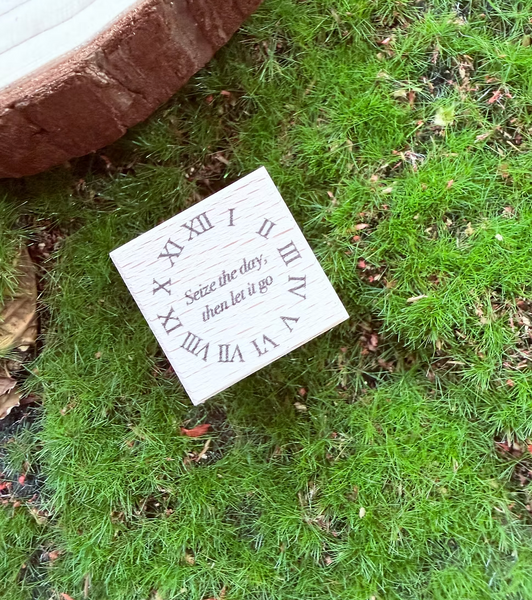 XII
I
II
III
IV
V
VI
VII
VIII
IX
X
XI
Seize the day,
then let it go